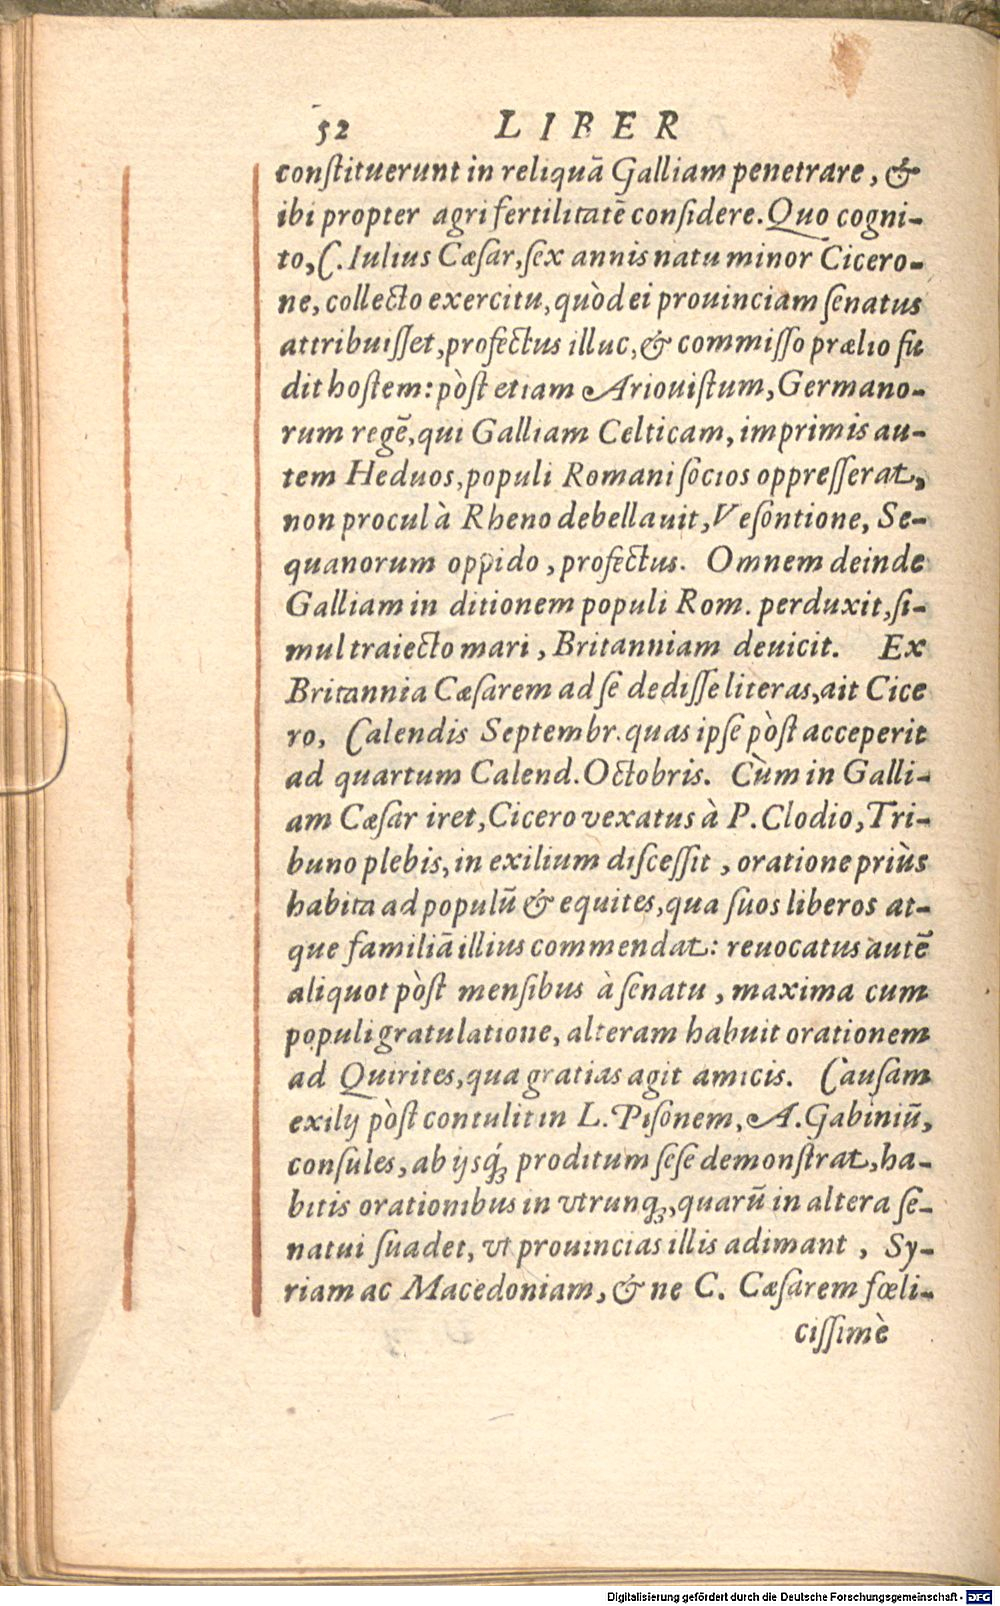 52 LIBER
constituerunt in reliquā Galliam penetrare, &
ibi propter agri fertilitatē considere. Quo cogni-
to, C. Iulius Cæsar, sex annis natu minor Cicero-
ne, collecto exercitu, quòd ei prouinciam senatus
attribuisset, profectus illuc, & commisso prælio fu
dit hostem: pòst etiam Ariouistum, Germano-
rum regē, qui Galliam Celticam, imprimis au-
tem Heduos, populi Romani socios oppresserat,
non procul à Rheno debellauit, Vesontione, Se-
quanorum oppido, profectus. Omnem deinde
Galliam in ditionem populi Rom. perduxit, si-
mul traiecto mari, Britanniam deuicit. Ex
Britannia Cæsarem ad se dedisse literas, ait Cice
ro, Calendis Septembr. quas ipse pòst acceperit
ad quartum Calend. Octobris. Cùm in Galli-
am Cæsar iret, Cicero vexatus à P. Clodio, Tri-
buno plebis, in exilium discessit, oratione priùs
habita ad populū & equites, qua suos liberos at-
que familiā illius commendat: reuocatus autē
aliquot pòst mensibus à senatu, maxima cum
populi gratulatione, alteram habuit orationem
ad Quirites, qua gratias agit amicis. Causam
exilij pòst contulit in L. Pisonem, A. Gabiniū,
consules, ab ijsq́ꝫ proditum sese demonstrat, ha-
bitis orationibus in vtrunqꝫ, quarū in altera se-
natui suadet, vt prouincias illis adimant, Sy-
riam ac Macedoniam, & ne C. Cæsarem fœli-
cissimè
Digitalisierung gefördert durch die Deutsche Forschungsgemeinschaft - DFG